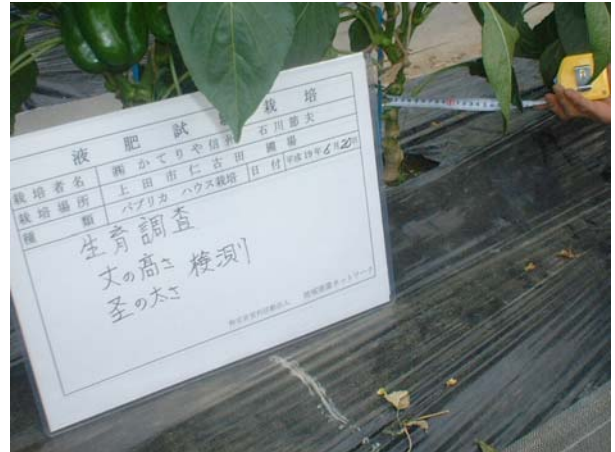 液肥試 栽培
栽培者名 ㈱かてりや信州 石川節夫
栽培場所 上田市仁古田 圃場
種類 パプリカ ハウス栽培 日付 平成19年6月20日
生育調査
丈の高さ 検測
茎の太さ
特定非営利活動法人 地域循環ネットワーク